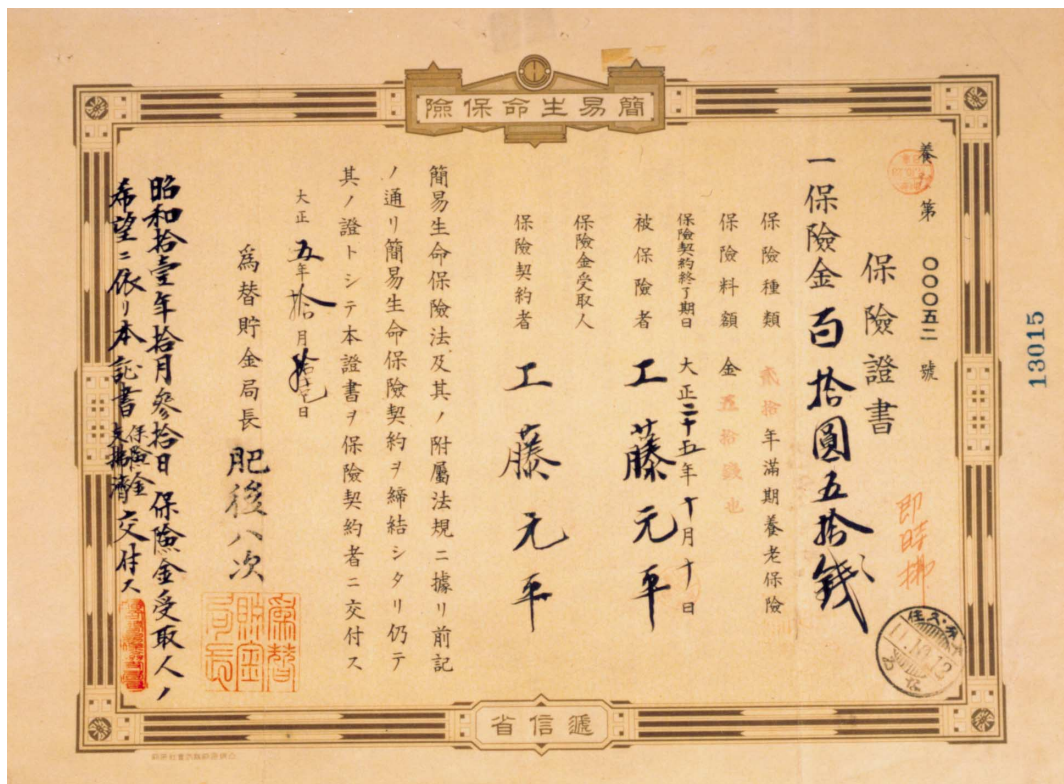 簡易生命保險
養 第 〇〇〇五二 號
保險證書
一保險金百拾圓五拾錢
保險種類 貳拾年滿期養老保險
保險料額 金五拾錢也
保險契約終了期日 大正三十五年十月十日
被保險者 工藤元平
保險金受取人
保險契約者 工藤元平
簡易生命保險法及其ノ附屬法規ニ據リ前記
ノ通リ簡易生命保險契約ヲ締結シタリ仍テ
其ノ證トシテ本證書ヲ保險契約者ニ交付ス
大正五年拾月 日
為替貯金局長 肥後八次
為替貯金局長
昭和拾壹年拾月參拾日保險金受取人ノ
希望ニ依リ本証書保險金支拂濟交付ス
即時拂
遞信省
13015